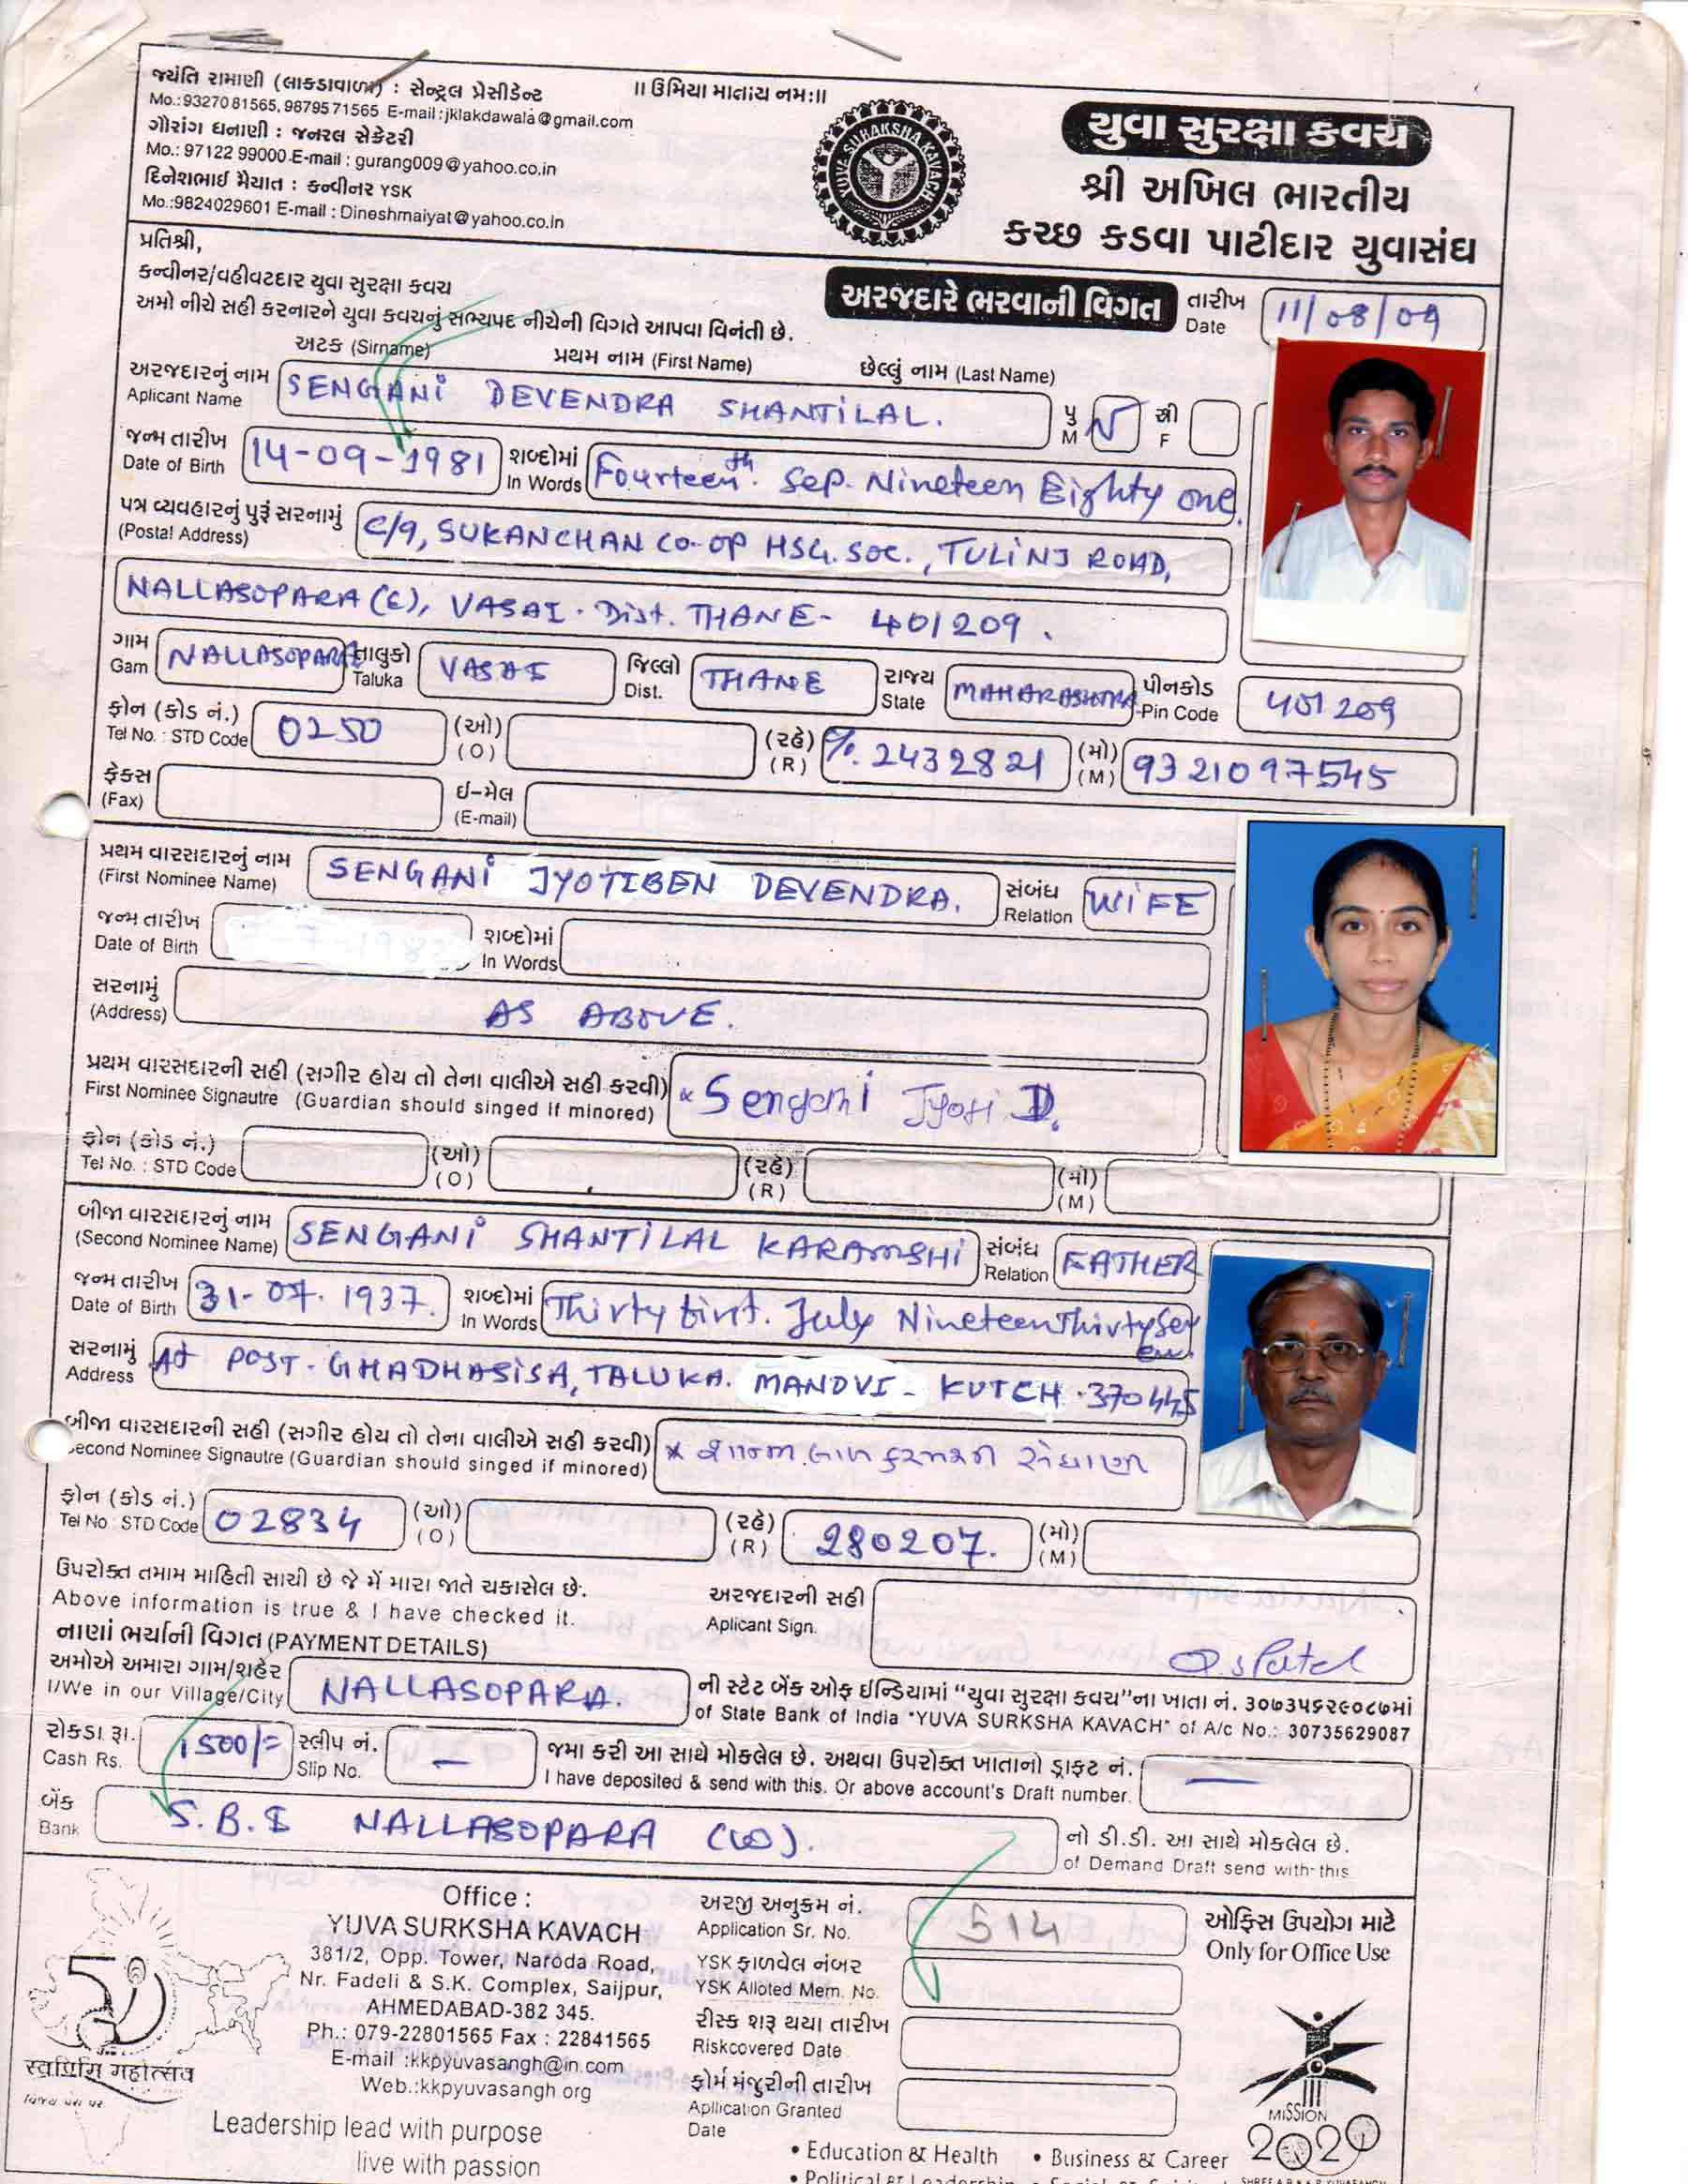 જયંતિ રામાણી (લાકડાવાળા) : સેન્ટ્રલ પ્રેસીડેન્ટ
Mo.:93270 81565, 98795 71565 E-mail :jklakdawala@gmail.com
ગૌરાંગ ધનાણી : જનરલ સેક્રેટરી
Mo.: 97122 99000 E-mail : gurang009@yahoo.co.in
દિનેશભાઈ મૈયાત : કન્વીનર YSK
Mo.:9824029601 E-mail : Dineshmaiyat@yahoo.co.in
॥ ઉમિયા માતાય નમઃ॥
YUVA SURAKSHA KAVACH
યુવા સુરક્ષા કવચ
શ્રી અખિલ ભારતીય
કચ્છ કડવા પાટીદાર યુવાસંઘ
પ્રતિશ્રી,
કન્વીનર/વહીવટદાર યુવા સુરક્ષા કવચ
અમો નીચે સહી કરનારને યુવા કવચનું સભ્યપદ નીચેની વિગતે આપવા વિનંતી છે.
અરજદારે ભરવાની વિગત
તારીખ
Date 11/08/09
અટક (Sirname) પ્રથમ નામ (First Name) છેલ્લું નામ (Last Name)
અરજદારનું નામ
Aplicant Name SENGANI DEVENDRA SHANTILAL. પુ M સ્ત્રી F
જન્મ તારીખ
Date of Birth 14-09-1981 શબ્દોમાં In Words Fourteenth. Sep. Nineteen Eighty one.
પત્ર વ્યવહારનું પુરૂં સરનામું
(Postal Address) C/9, SUKANCHAN CO-OP HSG. SOC., TULINJ ROAD,
NALLASOPARA (E), VASAI. Dist. THANE- 401209.
ગામ Gam NALLASOPARA તાલુકો Taluka VASAI જિલ્લો Dist. THANE રાજ્ય State MAHARASHTRA પીનકોડ Pin Code 401209
ફોન (કોડ નં.)
Tel No. : STD Code 0250 (ઓ) (O) (રહે) (R) 2432821 (મો) (M) 9321097545
ફેક્સ
(Fax) ઈ-મેલ (E-mail)
પ્રથમ વારસદારનું નામ
(First Nominee Name) SENGANI JYOTIBEN DEVENDRA. સંબંધ Relation WIFE
જન્મ તારીખ
Date of Birth શબ્દોમાં In Words
સરનામું
(Address) AS ABOVE.
પ્રથમ વારસદારની સહી (સગીર હોય તો તેના વાલીએ સહી કરવી)
First Nominee Signautre (Guardian should singed if minored) Sengani Jyoti D.
ફોન (કોડ નં.)
Tel No. : STD Code (ઓ) (O) (રહે) (R) (મો) (M)
બીજા વારસદારનું નામ
(Second Nominee Name) SENGANI SHANTILAL KARAMSHI સંબંધ Relation FATHER
જન્મ તારીખ
Date of Birth 31-07. 1937. શબ્દોમાં In Words Thirty first. July Nineteen Thirty Seven.
સરનામું
Address At POST. GHADHASISA, TALUKA. MANDVI - KUTCH. 370445
બીજા વારસદારની સહી (સગીર હોય તો તેના વાલીએ સહી કરવી)
Second Nominee Signautre (Guardian should singed if minored)
ફોન (કોડ નં.)
Tel No : STD Code 02834 (ઓ) (O) (રહે) (R) 280207. (મો) (M)
ઉપરોક્ત તમામ માહિતી સાચી છે જે મેં મારા જાતે ચકાસેલ છે.
Above information is true & I have checked it.
અરજદારની સહી
Aplicant Sign. D s Patel
નાણાં ભર્યાની વિગત (PAYMENT DETAILS)
અમોએ અમારા ગામ/શહેર
I/We in our Village/City NALLASOPARA.
ની સ્ટેટ બેંક ઓફ ઈન્ડિયામાં “યુવા સુરક્ષા કવચ”ના ખાતા નં. ૩૦૭૩૫૬૨૯૦૮૭માં
of State Bank of India "YUVA SURKSHA KAVACH" of A/c No.: 30735629087
રોકડા રૂા.
Cash Rs. 1500/= સ્લીપ નં. Slip No. —
જમા કરી આ સાથે મોકલેલ છે. અથવા ઉપરોક્ત ખાતાનો ડ્રાફ્ટ નં.
I have deposited & send with this. Or above account's Draft number. —
બેંક
Bank S.B.I NALLASOPARA (W).
નો ડી.ડી. આ સાથે મોકલેલ છે.
of Demand Draft send with-this
Office :
YUVA SURKSHA KAVACH
381/2, Opp. Tower, Naroda Road,
Nr. Fadeli & S.K. Complex, Saijpur,
AHMEDABAD-382 345.
Ph.: 079-22801565 Fax : 22841565
E-mail :kkpyuvasangh@in.com
Web.:kkpyuvasangh.org
Leadership lead with purpose
live with passion
અરજી અનુક્રમ નં.
Application Sr. No. 514
YSK ફાળવેલ નંબર
YSK Alloted Mem. No.
રીસ્ક શરૂ થયા તારીખ
Riskcovered Date
ફોર્મ મંજુરીની તારીખ
Apllication Granted
Date
ઓફિસ ઉપયોગ માટે
Only for Office Use
MISSION
2020
• Education & Health • Business & Career